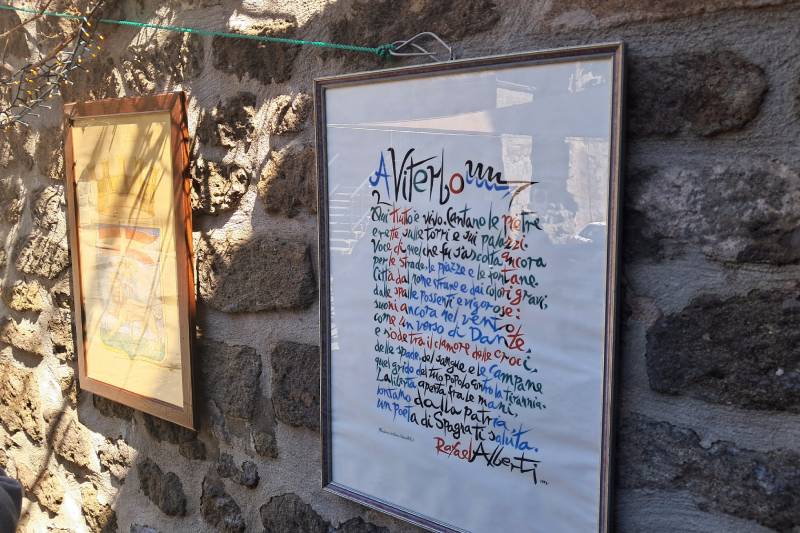 A Viterbo
Qui tutto è vivo. Cantano le pietre
erette sulle torri e sui palazzi.
Voce di quel che fu s'ascolta ancora
per le strade, le piazze e le fontane.
Città dal nome strano e dai colori gravi,
dalle spalle possenti e vigorose:
suoni ancora nel vento
come un verso di Dante,
e s'ode tra il clamore delle croci,
delle spade, del sangue e le campane
quel grido del tuo popolo contro la tirannia.
La libertà aperta fra le mani,
lontano dalla patria,
un poeta di Spagna ti saluta.
Rafael Alberti